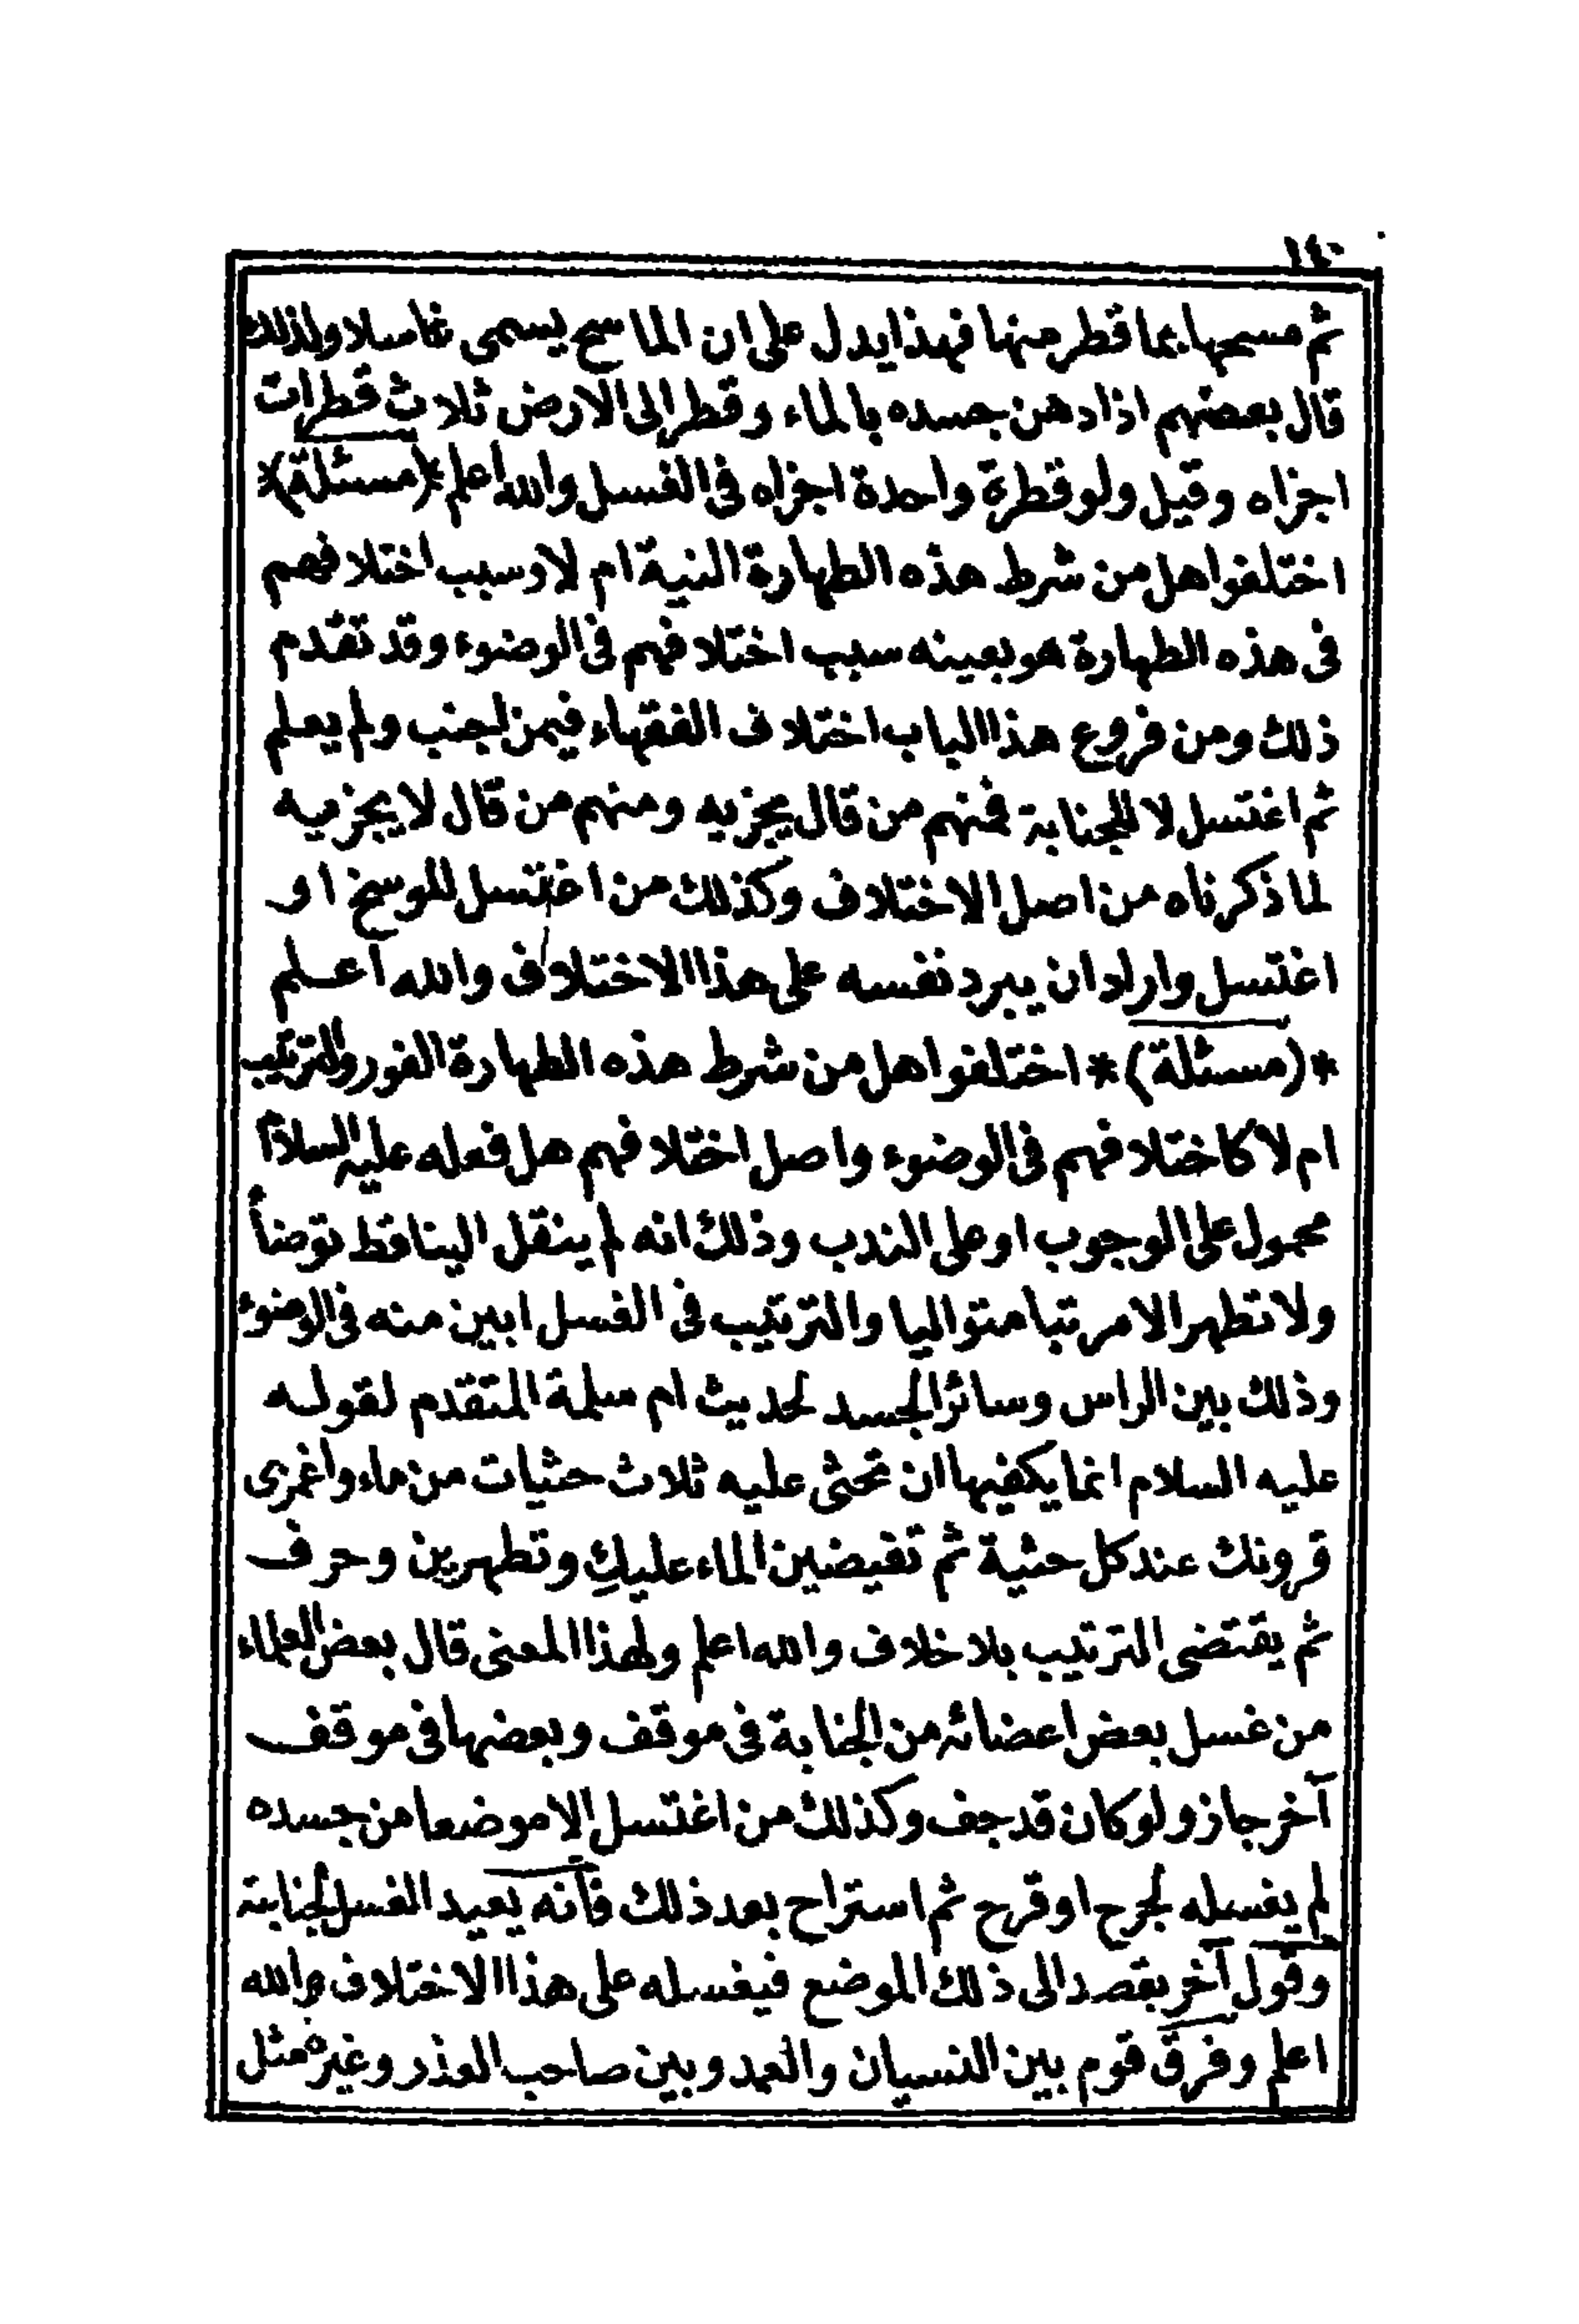 ١٤٠
ثم مسحها بما قطر منها فهذا يدل على ان الماسح يسمى غاسلا ولذلك
قال بعضهم اذا دهن جسده بالماء وقطر الى الارض ثلاث قطرات
اجزاه وقيل ولو قطرة واحدة اجزاه فى الغسل والله اعلم *(مسئلة)*
اختلفوا هل من شرط هذه الطهارة النية ام لا وسبب اختلافهم
فى هذه الطهارة هو بعينه سبب اختلافهم فى الوضوء وقد تقدم
ذلك ومن فروع هذا الباب اختلاف الفقهاء فيمن اجنب ولم يعلم
ثم اغتسل لا للجنابة فمنهم من قال يجزيه ومنهم من قال لا يجزيه
لما ذكرناه من اصل الاختلاف وكذلك من اغتسل للوسخ او
اغتسل واراد ان يبرد نفسه على هذا الاختلاف والله اعلم
*(مسئلة)* اختلفوا هل من شرط هذه الطهارة الفور والترتيب
ام لا كاختلافهم فى الوضوء واصل اختلافهم هل فعله عليه السلام
محمول على الوجوب او على الندب وذلك انه لم ينقل الينا قط توضأ
ولا تطهر الا مرتبا متواليا والترتيب فى الغسل ابين منه فى الوضوء
وذلك بين الراس وسائر الجسد لحديث ام سلمة المتقدم لقوله
عليه السلام انما يكفيها ان تحثى عليه ثلاث حثيات من ماء واغمزى
قرونك عند كل حثية ثم تفيضين الماء عليكِ وتطهرين وحرف
ثم يقتضى الترتيب بلا خلاف والله اعلم ولهذا المعنى قال بعض العلماء
من غسل بعض اعضائه من الجنابة فى موقف وبعضها فى موقف
آخر جاز ولو كان قد جف وكذلك من اغتسل الا موضعا من جسده
لم يغسله لجرح او قرح ثم استراح بعد ذلك فانه يعيد الغسل لجنابته
وقول آخر يقصد الى ذلك الموضع فيغسله على هذا الاختلاف والله
اعلم وفرق قوم بين النسيان والعمد وبين صاحب العذر وغيره مثل